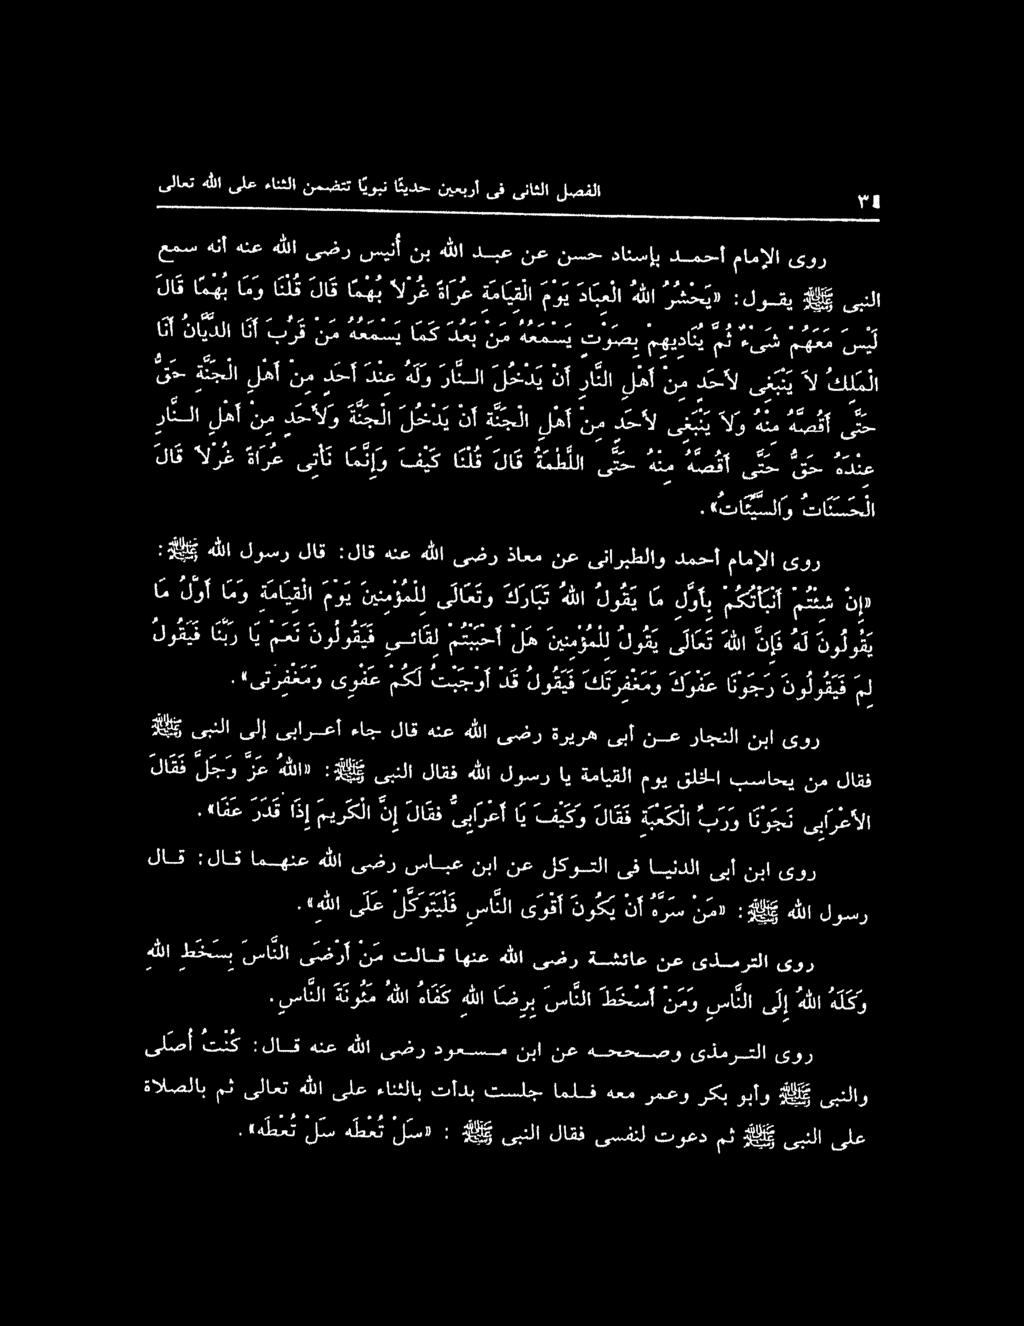 الفصل الثانى فى أربعين حديثًا نبويًا تتضمن الثناء على الله تعالى
روى الإمام أحمد بإسناد حسن عن عبد الله بن أُنيس رضى الله عنه أنه سمع
النبى ﷺ يقول: «يَحْشُرُ اللهُ الْعِبَادَ يَوْمَ الْقِيَامَةِ عُرَاةً غُرْلاً بُهْمًا قَالَ قُلْنَا وَمَا بُهْمًا قَالَ
لَيْسَ مَعَهُمْ شَىْءٌ ثُمَّ يُنَادِيهِمْ بِصَوْتٍ يَسْمَعُهُ مَنْ بَعُدَ كَمَا يَسْمَعُهُ مَنْ قَرُبَ أَنَا الدَّيَّانُ أَنَا
الْمَلِكُ لاَ يَنْبَغِى لأَحَدٍ مِنْ أَهْلِ النَّارِ أَنْ يَدْخُلَ النَّارَ وَلَهُ عِنْدَ أَحَدٍ مِنْ أَهْلِ الْجَنَّةِ حَقٌّ
حَتَّى أَقُصَّهُ مِنْهُ وَلاَ يَنْبَغِى لأَحَدٍ مِنْ أَهْلِ الْجَنَّةِ أَنْ يَدْخُلَ الْجَنَّةَ وَلأَحَدٍ مِنْ أَهْلِ النَّارِ
عِنْدَهُ حَقٌّ حَتَّى أَقُصَّهُ مِنْهُ حَتَّى اللَّطْمَةُ قَالَ قُلْنَا كَيْفَ وَإِنَّمَا نَأْتِى عُرَاةً غُرْلاً قَالَ
الْحَسَنَاتُ وَالسَّيِّئَاتُ».
روى الإمام أحمد والطبرانى عن معاذ رضى الله عنه قال: قال رسول الله ﷺ:
«إِنْ شِئْتُمْ أَنْبَأْتُكُمْ بِأَوَّلِ مَا يَقُولُ اللهُ تَبَارَكَ وَتَعَالَى لِلْمُؤْمِنِينَ يَوْمَ الْقِيَامَةِ وَمَا أَوَّلُ مَا
يَقُولُونَ لَهُ فَإِنَّ اللهَ تَعَالَى يَقُولُ لِلْمُؤْمِنِينَ هَلْ أَحْبَبْتُمْ لِقَائِى فَيَقُولُونَ نَعَمْ يَا رَبَّنَا فَيَقُولُ
لِمَ فَيَقُولُونَ رَجَوْنَا عَفْوَكَ وَمَغْفِرَتَكَ فَيَقُولُ قَدْ أَوْجَبْتُ لَكُمْ عَفْوِى وَمَغْفِرَتِى».
روى ابن النجار عن أبى هريرة رضى الله عنه قال جاء أعرابى إلى النبى ﷺ
فقال من يحاسب الخلق يوم القيامة يا رسول الله فقال النبى ﷺ: «اللهُ عَزَّ وَجَلَّ فَقَالَ
الأَعْرَابِى نَجَوْنَا وَرَبِّ الْكَعْبَةِ فَقَالَ وَكَيْفَ يَا أَعْرَابِىُّ فقَالَ إِنَّ الْكَرِيمَ إِذَا قَدَرَ عَفَا».
روى ابن أبى الدنيا فى التوكل عن ابن عباس رضى الله عنهما قال: قال
رسول الله ﷺ: «مَنْ سَرَّهُ أَنْ يَكُونَ أَقْوَى النَّاسِ فَلْيَتَوَكَّلْ عَلَى اللهِ».
روى الترمذى عن عائشة رضى الله عنها قالت مَنْ أَرْضَى النَّاسَ بِسَخَطِ اللهِ
وَكَلَهُ اللهُ إِلَى النَّاسِ وَمَنْ أَسْخَطَ النَّاسَ بِرِضَا اللهِ كَفَاهُ اللهُ مَئُونَةَ النَّاسِ.
روى الترمذى وصححه عن ابن مسعود رضى الله عنه قال: كُنْتُ أُصَلى
والنبى ﷺ وأبو بكر وعمر معه فلما جلست بدأت بالثناء على الله تعالى ثم بالصلاة
على النبى ﷺ ثم دعوت لنفسى فقال النبى ﷺ : «سَلْ تُعْطَه سَلْ تُعْطَه».